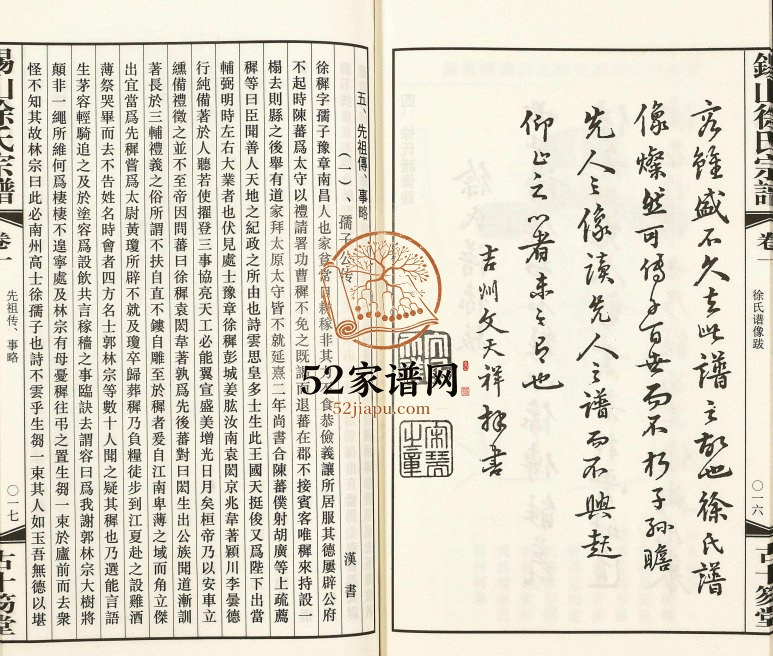 錫山徐氏宗譜
卷一
徐氏谱像跋
〇一六
古十笏堂
雖盛不久此譜之也徐氏譜
像燦然可傳于百世而不朽子孫瞻
先人之像讀先人之譜而不興起
仰止之心者未之有也
吉州文天祥拜書
五、先祖傳、事略
（一）、孺子公傳
漢書
徐穉字孺子豫章南昌人也家貧常自耕稼非其力不食恭儉義讓所居服其德屢辟公府
不起時陳蕃爲太守以禮請署功曹穉不免之既謁而退蕃在郡不接賓客唯穉來特設一
榻去則縣之後舉有道家拜太原太守皆不就延熹二年尚書令陳蕃僕射胡廣等上疏薦
穉等曰臣聞善人天地之紀政之所由也詩雲思皇多士生此王國天挺俊又爲陛下出當
輔弼明時左右大業者也伏見處士豫章徐穉彭城姜肱汝南袁閎京兆韋著穎川李曇德
行純備著於人聽若使擢登三事協亮天工必能翼宣盛美增光日月矣桓帝乃以安車玄
纁備禮徵之並不至帝因問蕃曰徐穉袁閎韋著孰爲先後蕃對曰閎生出公族聞道漸訓
著長於三輔禮義之俗所謂不扶自直不鏤自雕至於穉者爰自江南卑薄之域而角立傑
出宜當爲先穉嘗爲太尉黃瓊所辟不就及瓊卒歸葬穉乃負糧徒步到江夏赴之設雞酒
薄祭哭畢而去不告姓名時會者四方名士郭林宗等數十人聞之疑其穉也乃選能言語
生茅容輕騎追之及於塗容爲設飲共言稼穡之事臨訣去謂容曰爲我謝郭林宗大樹將
顛非一繩所維何爲棲棲不遑寧處及林宗有母憂穉往弔之置生芻一束於廬前而去衆
怪不知其故林宗曰此必南州高士徐孺子也詩不雲乎生芻一束其人如玉吾無德以堪
錫山徐氏宗譜
卷一
先祖传、事略
〇一七
古十笏堂
52家谱网
52jiapu.com